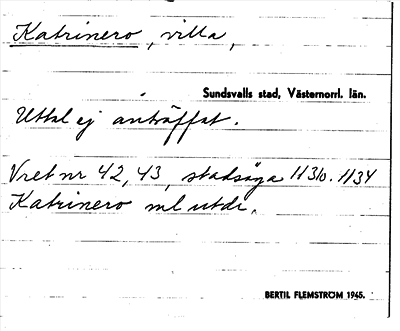 Katrinero, villa,
Sundsvalls stad, Västernorrl. län.
Uttal ej anträffat.
Vret nr 42, 43, stadsäga 1130. 1134
Katrinero ml utdr.
BERTIL FLEMSTRÖM 1945.